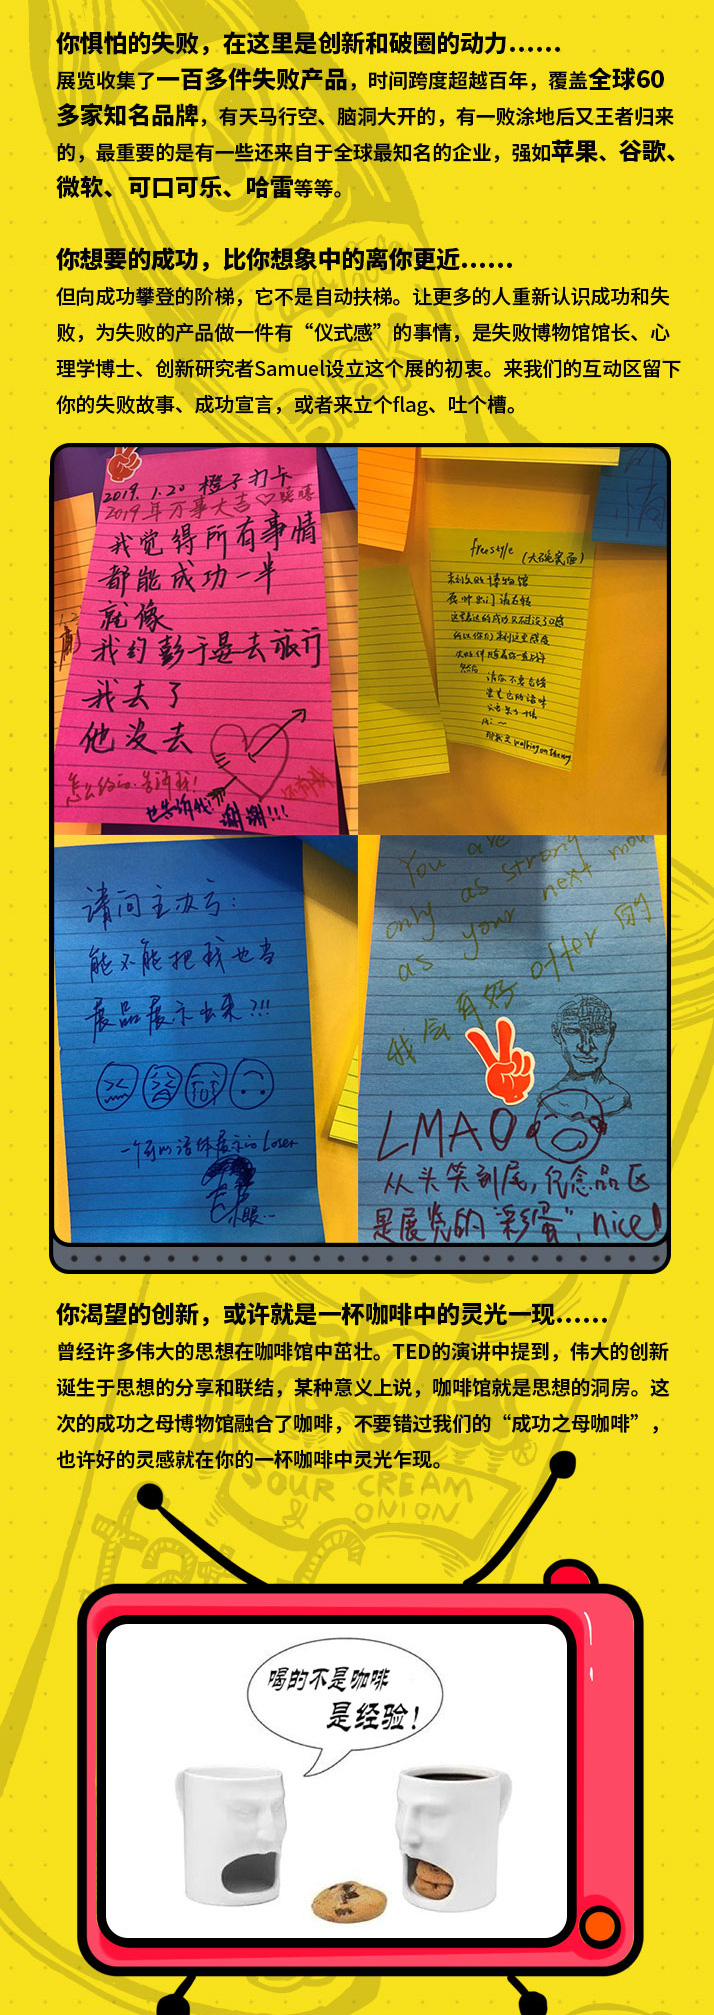 你惧怕的失败，在这里是创新和破圈的动力……
展览收集了一百多件失败产品，时间跨度超越百年，覆盖全球60
多家知名品牌，有天马行空、脑洞大开的，有一败涂地后又王者归来
的，最重要的是有一些还来自于全球最知名的企业，强如苹果、谷歌、
微软、可口可乐、哈雷等等。
你想要的成功，比你想象中的离你更近……
但向成功攀登的阶梯，它不是自动扶梯。让更多的人重新认识成功和失
败，为失败的产品做一件有“仪式感”的事情，是失败博物馆馆长、心
理学博士、创新研究者Samuel设立这个展的初衷。来我们的互动区留下
你的失败故事、成功宣言，或者来立个flag、吐个槽。
2019.1.20 橙子打卡
2019年万事大吉♡
我觉得所有事情
都能成功一半
就像
我约彭于晏去旅行
我去了
他没去
怎么约的，告诉我！
也告诉我！谢谢!!!
freestyle
来到失败博物馆
walking on the way
请问主办方：
能不能把我也当
展品展示出来?!!!
一个可以活体展示的Loser
You are
only as strong
as your next move
我会有好 offer 的
LMAO
从头笑到尾，纪念品区
是展览的“彩蛋”，nice!
你渴望的创新，或许就是一杯咖啡中的灵光一现……
曾经许多伟大的思想在咖啡馆中茁壮。TED的演讲中提到，伟大的创新
诞生于思想的分享和联结，某种意义上说，咖啡馆就是思想的洞房。这
次的成功之母博物馆融合了咖啡，不要错过我们的“成功之母咖啡”，
也许好的灵感就在你的一杯咖啡中灵光乍现。
SOUR CREAM
& ONION
喝的不是咖啡
是经验！